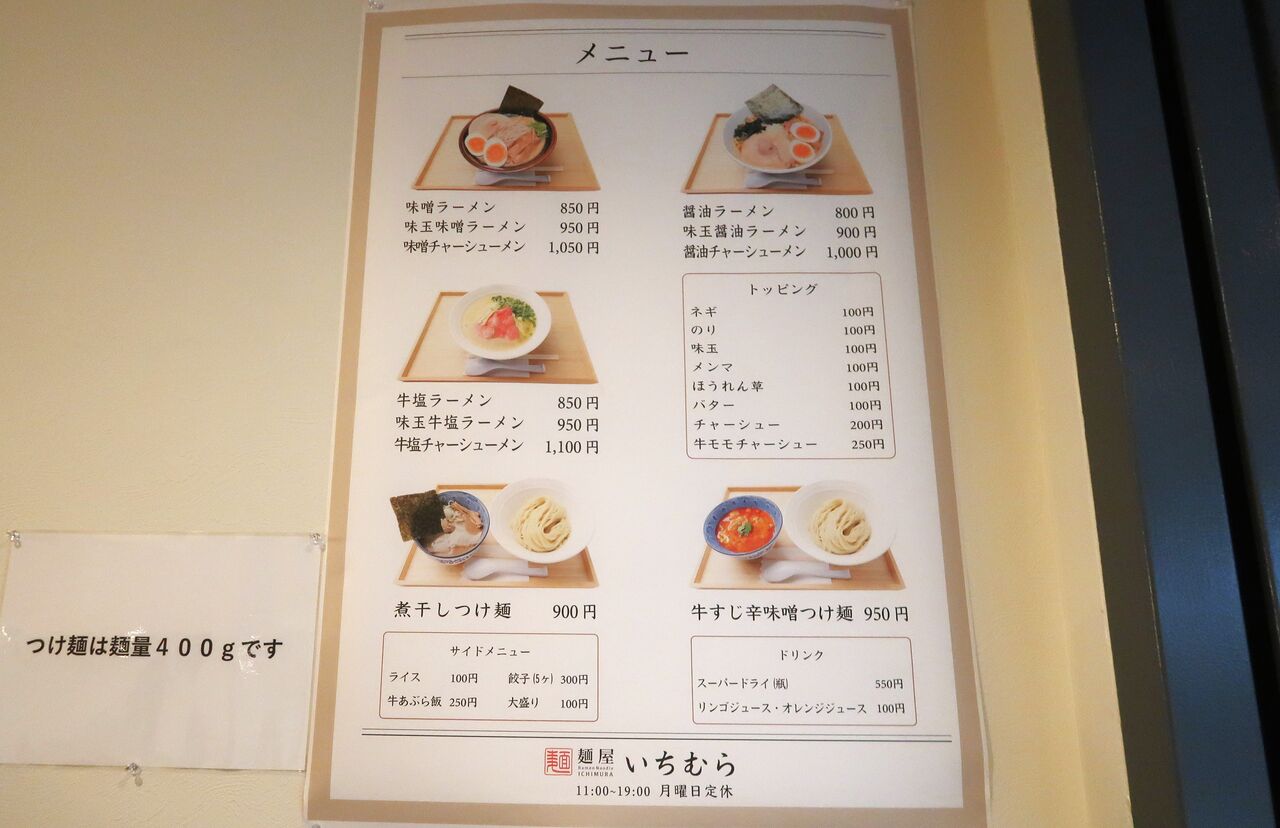 メニュー
味噌ラーメン 850円
味玉味噌ラーメン 950円
味噌チャーシューメン 1,050円
醤油ラーメン 800円
味玉醤油ラーメン 900円
醤油チャーシューメン 1,000円
牛塩ラーメン 850円
味玉牛塩ラーメン 950円
牛塩チャーシューメン 1,100円
トッピング
ネギ 100円
のり 100円
味玉 100円
メンマ 100円
ほうれん草 100円
バター 100円
チャーシュー 200円
牛モモチャーシュー 250円
煮干しつけ麺 900円
牛すじ辛味噌つけ麺 950円
サイドメニュー
ライス 100円 餃子(5ヶ) 300円
牛あぶら飯 250円 大盛り 100円
ドリンク
スーパードライ(瓶) 550円
リンゴジュース・オレンジジュース 100円
麺 麺屋 いちむら
Ramen Noodle
ICHIMURA
11:00~19:00 月曜日定休
つけ麺は麺量400gです